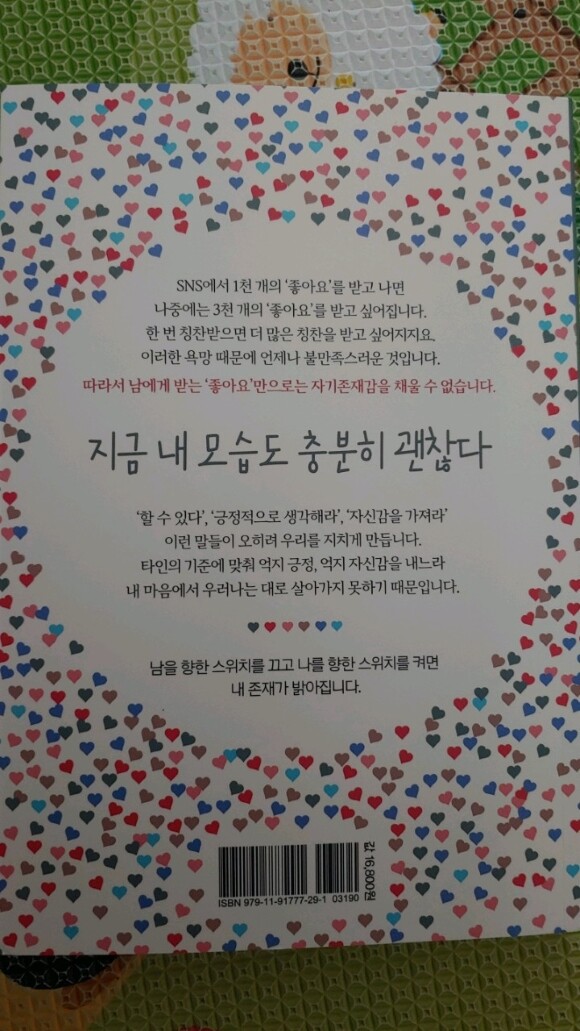 SNS에서 1천 개의 ‘좋아요’를 받고 나면
나중에는 3천 개의 ‘좋아요’를 받고 싶어집니다.
한 번 칭찬받으면 더 많은 칭찬을 받고 싶어지지요.
이러한 욕망 때문에 언제나 불만족스러운 것입니다.
따라서 남에게 받는 ‘좋아요’만으로는 자기존재감을 채울 수 없습니다.
지금 내 모습도 충분히 괜찮다
‘할 수 있다’, ‘긍정적으로 생각해라’, ‘자신감을 가져라’
이런 말들이 오히려 우리를 지치게 만듭니다.
타인의 기준에 맞춰 억지 긍정, 억지 자신감을 내느라
내 마음에서 우러나는 대로 살아가지 못하기 때문입니다.
남을 향한 스위치를 끄고 나를 향한 스위치를 켜면
내 존재가 밝아집니다.
값 16,800원
ISBN 979-11-91777-29-1 03190